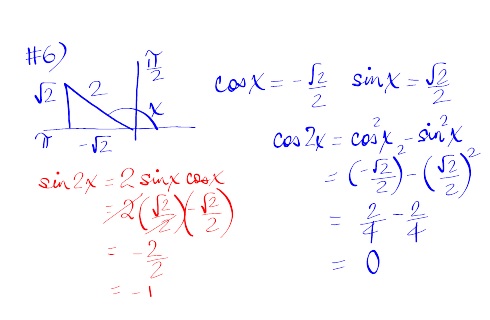 #6)
π/2
√2 2 x
π -√2
cosx = -√2/2 sinx = √2/2
cos2x = cos²x - sin²x
= (-√2/2)² - (√2/2)²
= 2/4 - 2/4
= 0
sin2x = 2 sinx cosx
= 2(√2/2)(-√2/2)
= -2/2
= -1